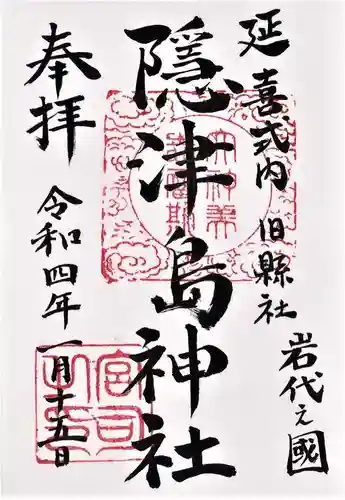 延喜式内 旧縣社
岩代之國
隠津島神社
奉拝
令和四年一月十五日
宮司之印